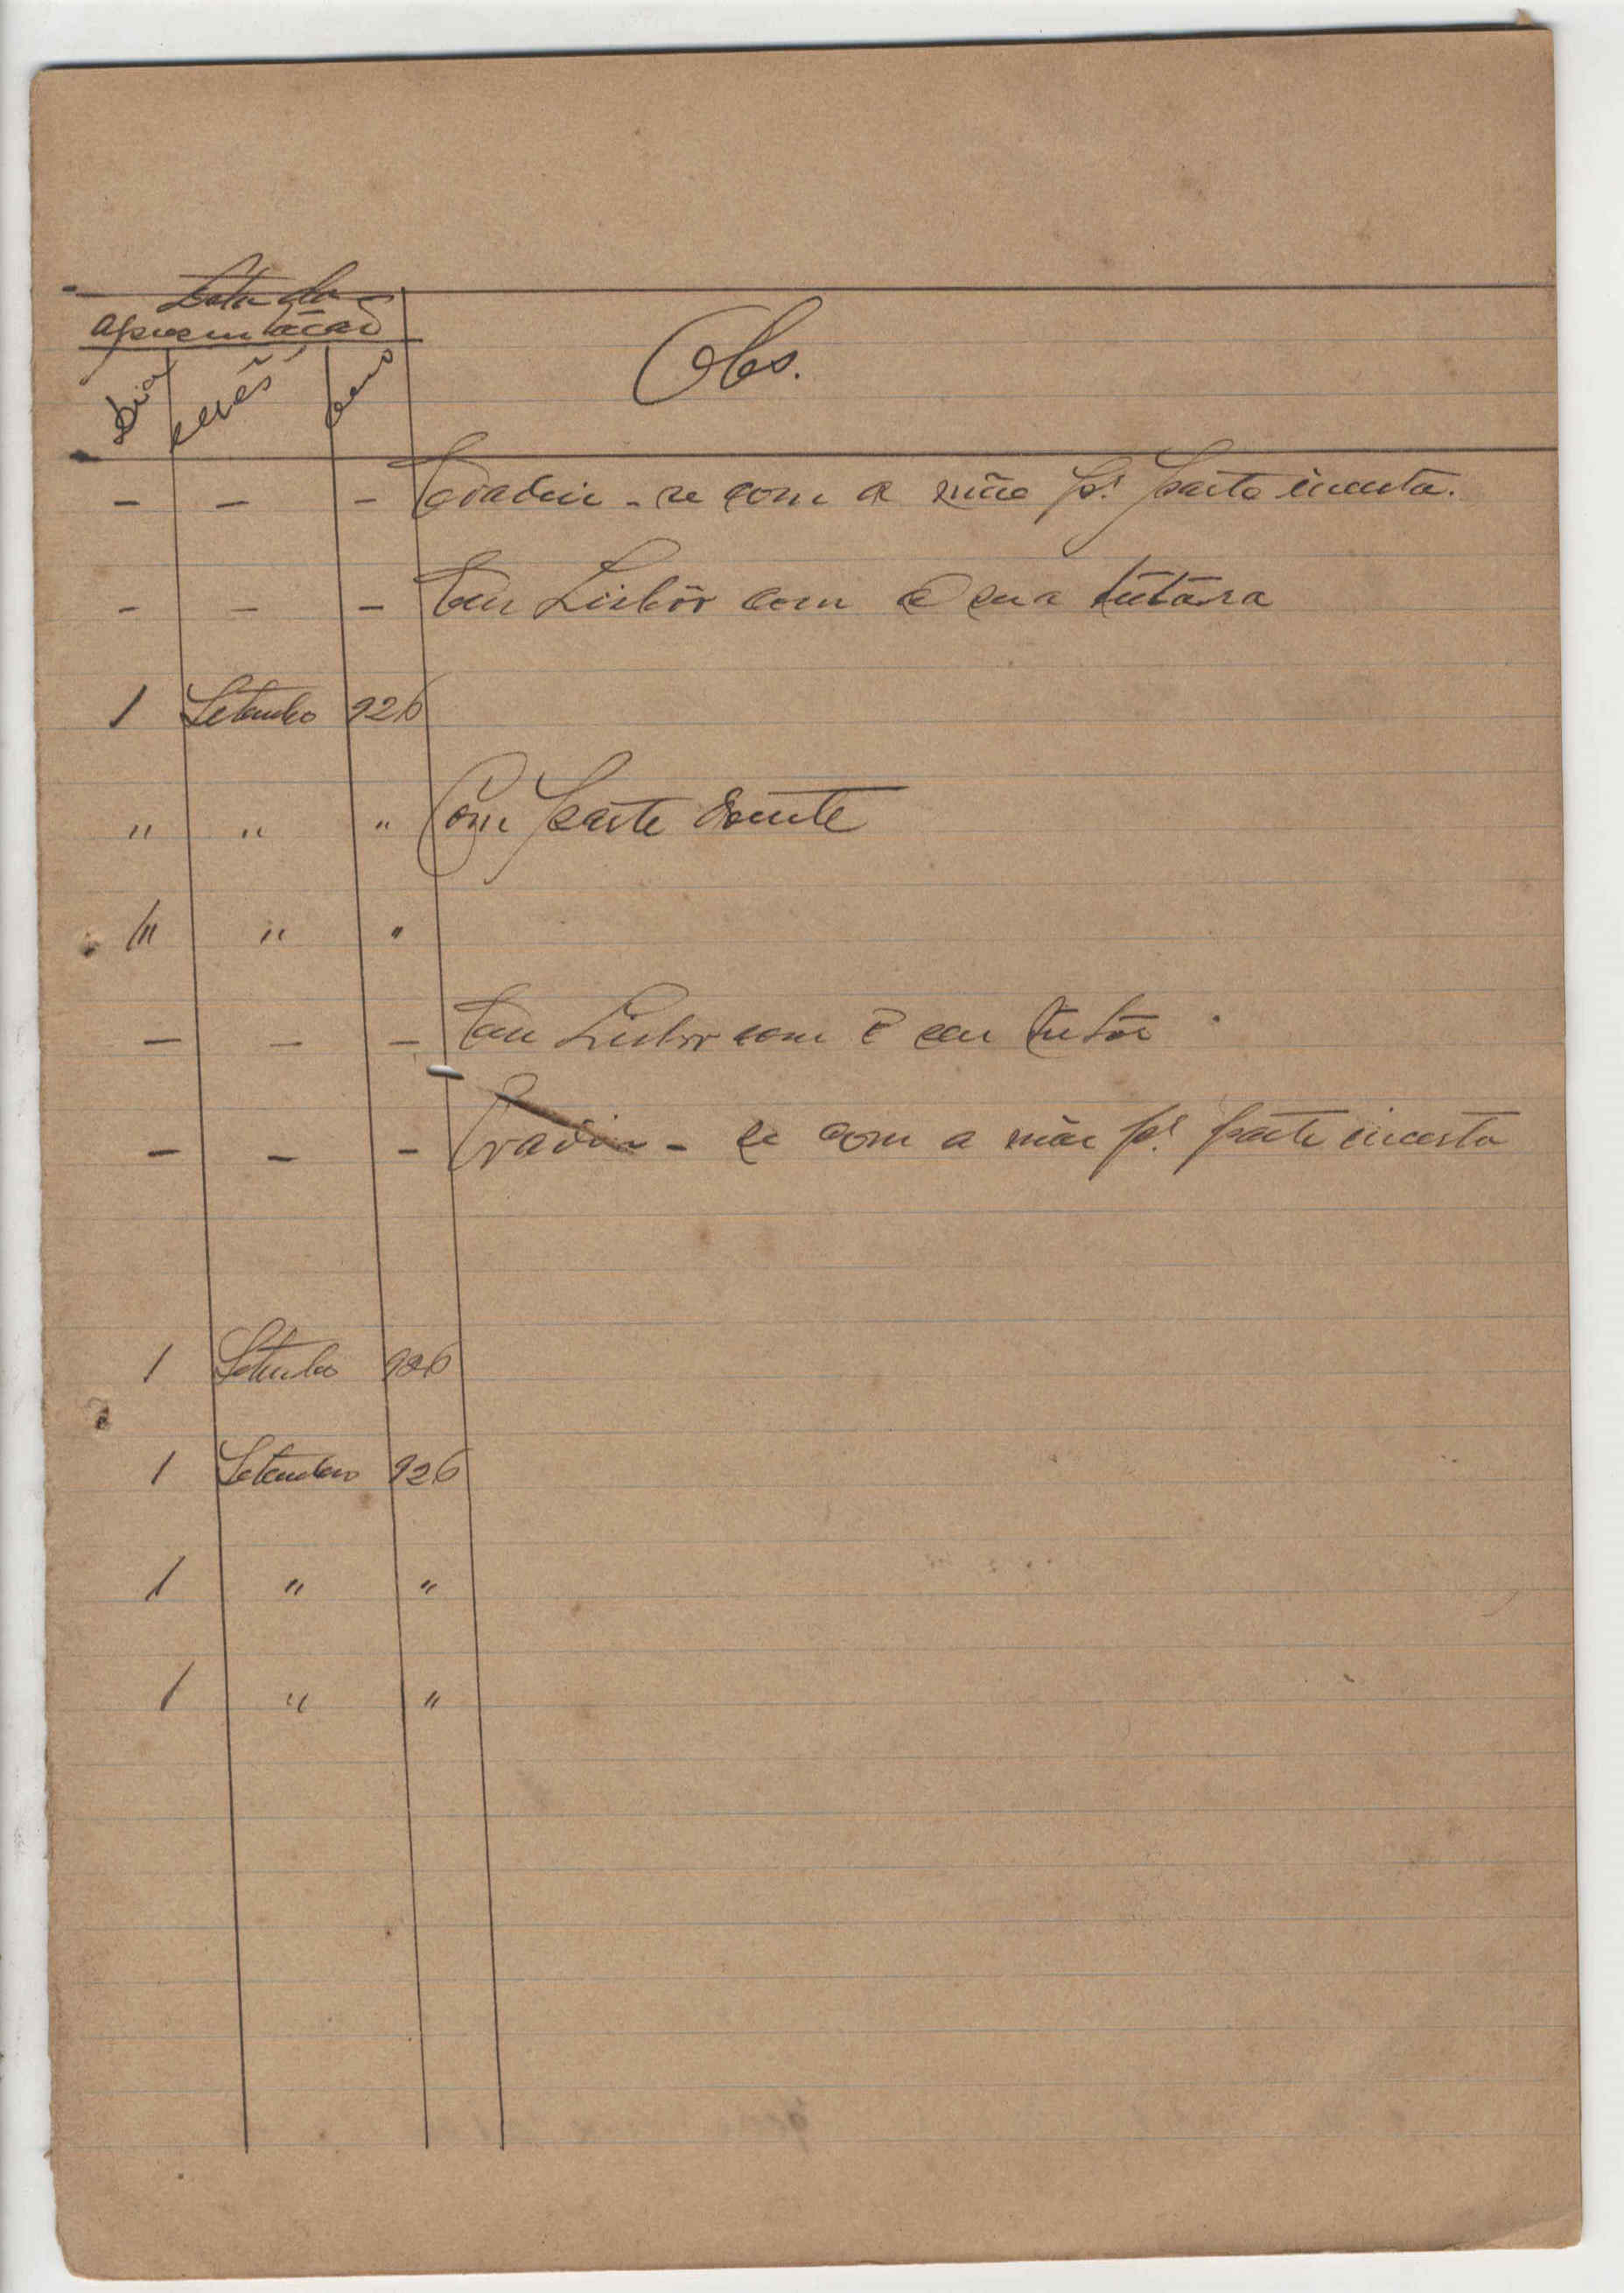 Data da
apresentação
Dia Mês Ano
Obs.
- - - Evadiu-se com a mãe pª parte incerta.
- - - Em Lisbôa com a sua tutôra
1 Setembro 926
" " " Com parte doente
1" " "
- - - Em Lisbôa com o seu tutôr
- - - Evadiu-se com a mãe pª parte incerta
1 Setembro 926
1 Setembro 926
1 " "
1 " "